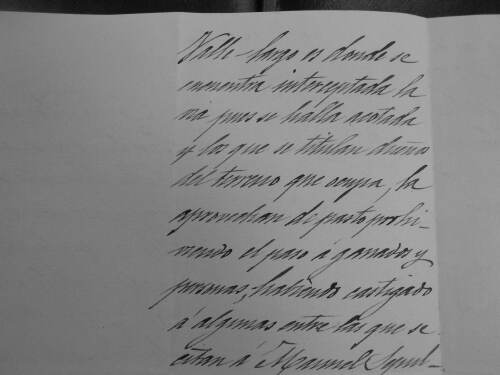 Valle-largo es donde se
encuentra interceptada la
via pues se halla acotada
y los que se titulan dueños
del terreno que ocupa, la
aprovechan de pasto prohi-
viendo el paso á ganados y
personas, habiendo castigado
á algunas entre las que se
citan á Manuel